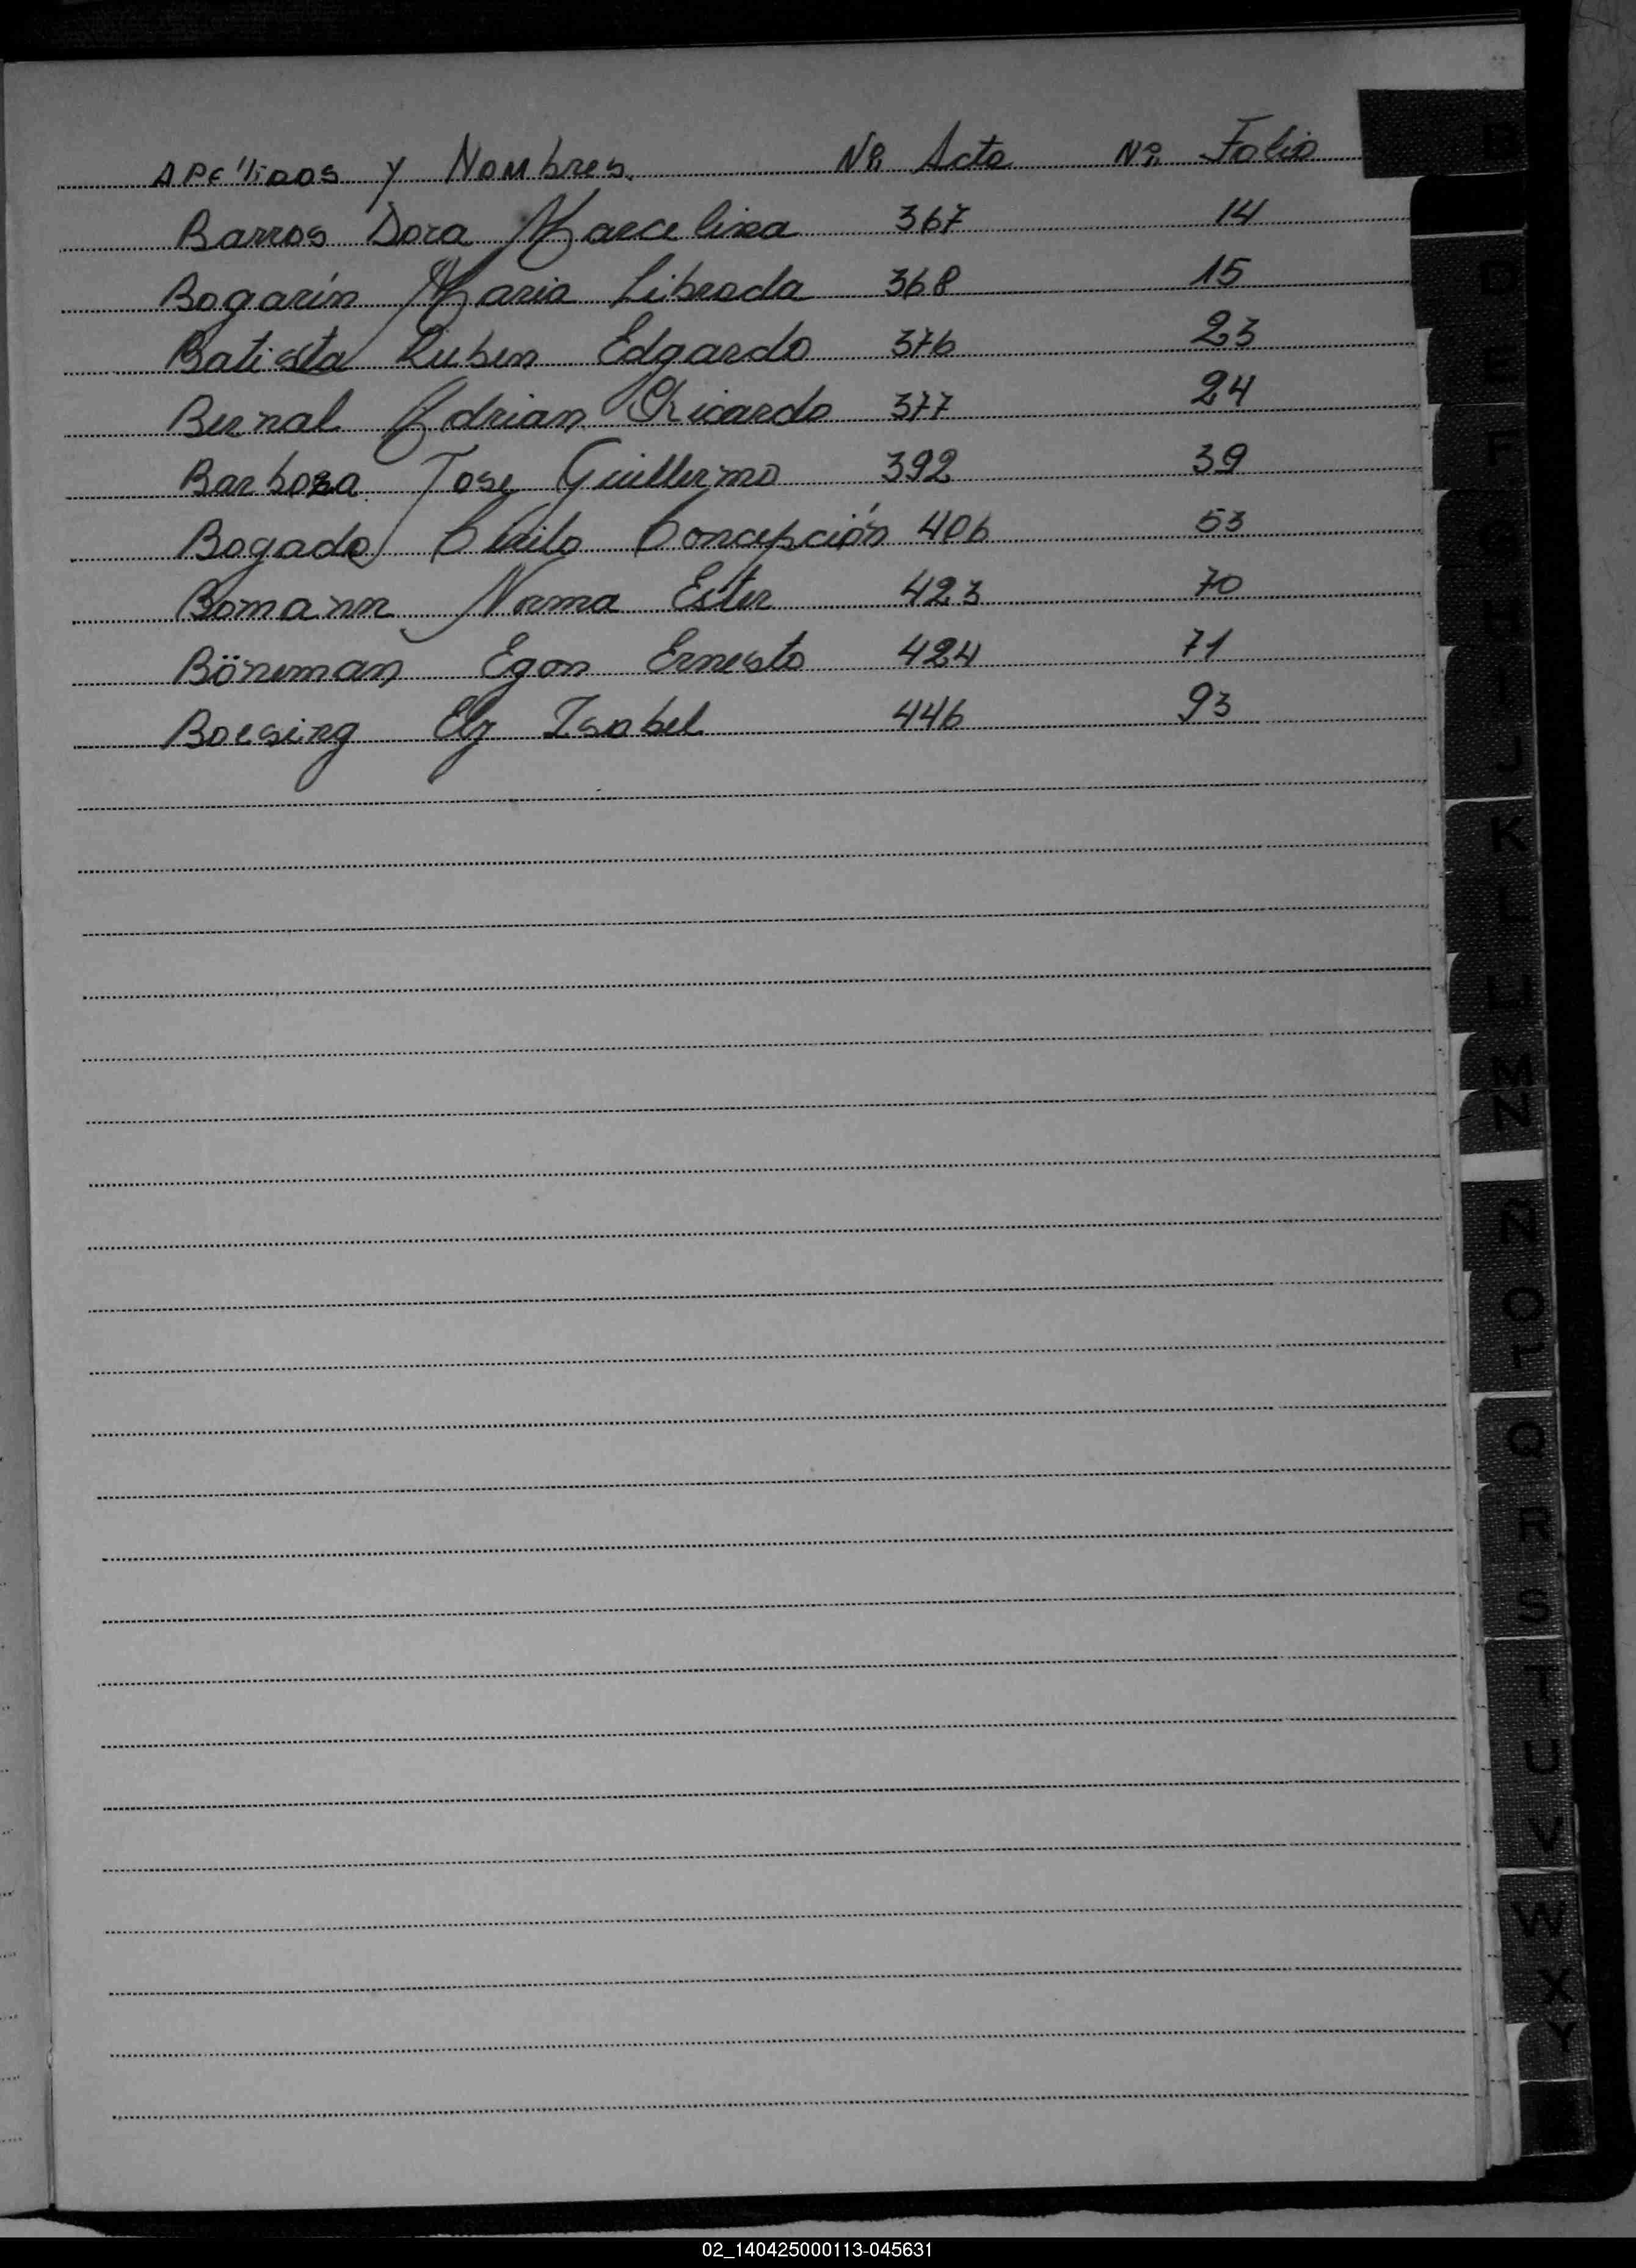 Apellidos y Nombres. Nº Acta Nº Folio
Barros Dora Marcelina 367 14
Bogarín Maria Librada 368 15
Batista Ruben Edgardo 376 23
Bernal Adrian Ricardo 377 24
Barboza Jose Guillermo 392 39
Bogado Cirilo Concepción 406 53
Bomann Norma Ester 423 70
Böneman Egon Ernesto 424 71
Boesing Ely Isabel 446 93
B
D
F
I
J
K
L
LL
M
N
Ñ
O
Q
R
S
T
U
V
W
X
Y
02_140425000113-045631